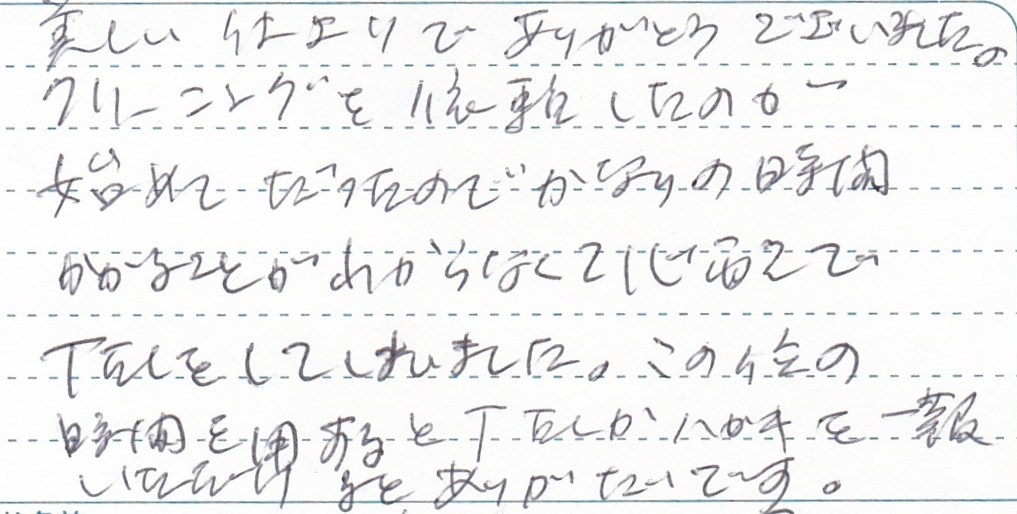 美しい仕上りでありがとうございました。
クリーニングを依頼したのが
始めてだったのでかなりの時間
かかることがわからなくて心配で
TELをしてしまいました。この位の
時間を用するとTELかハガキを一報
いただけるとありがたいです。